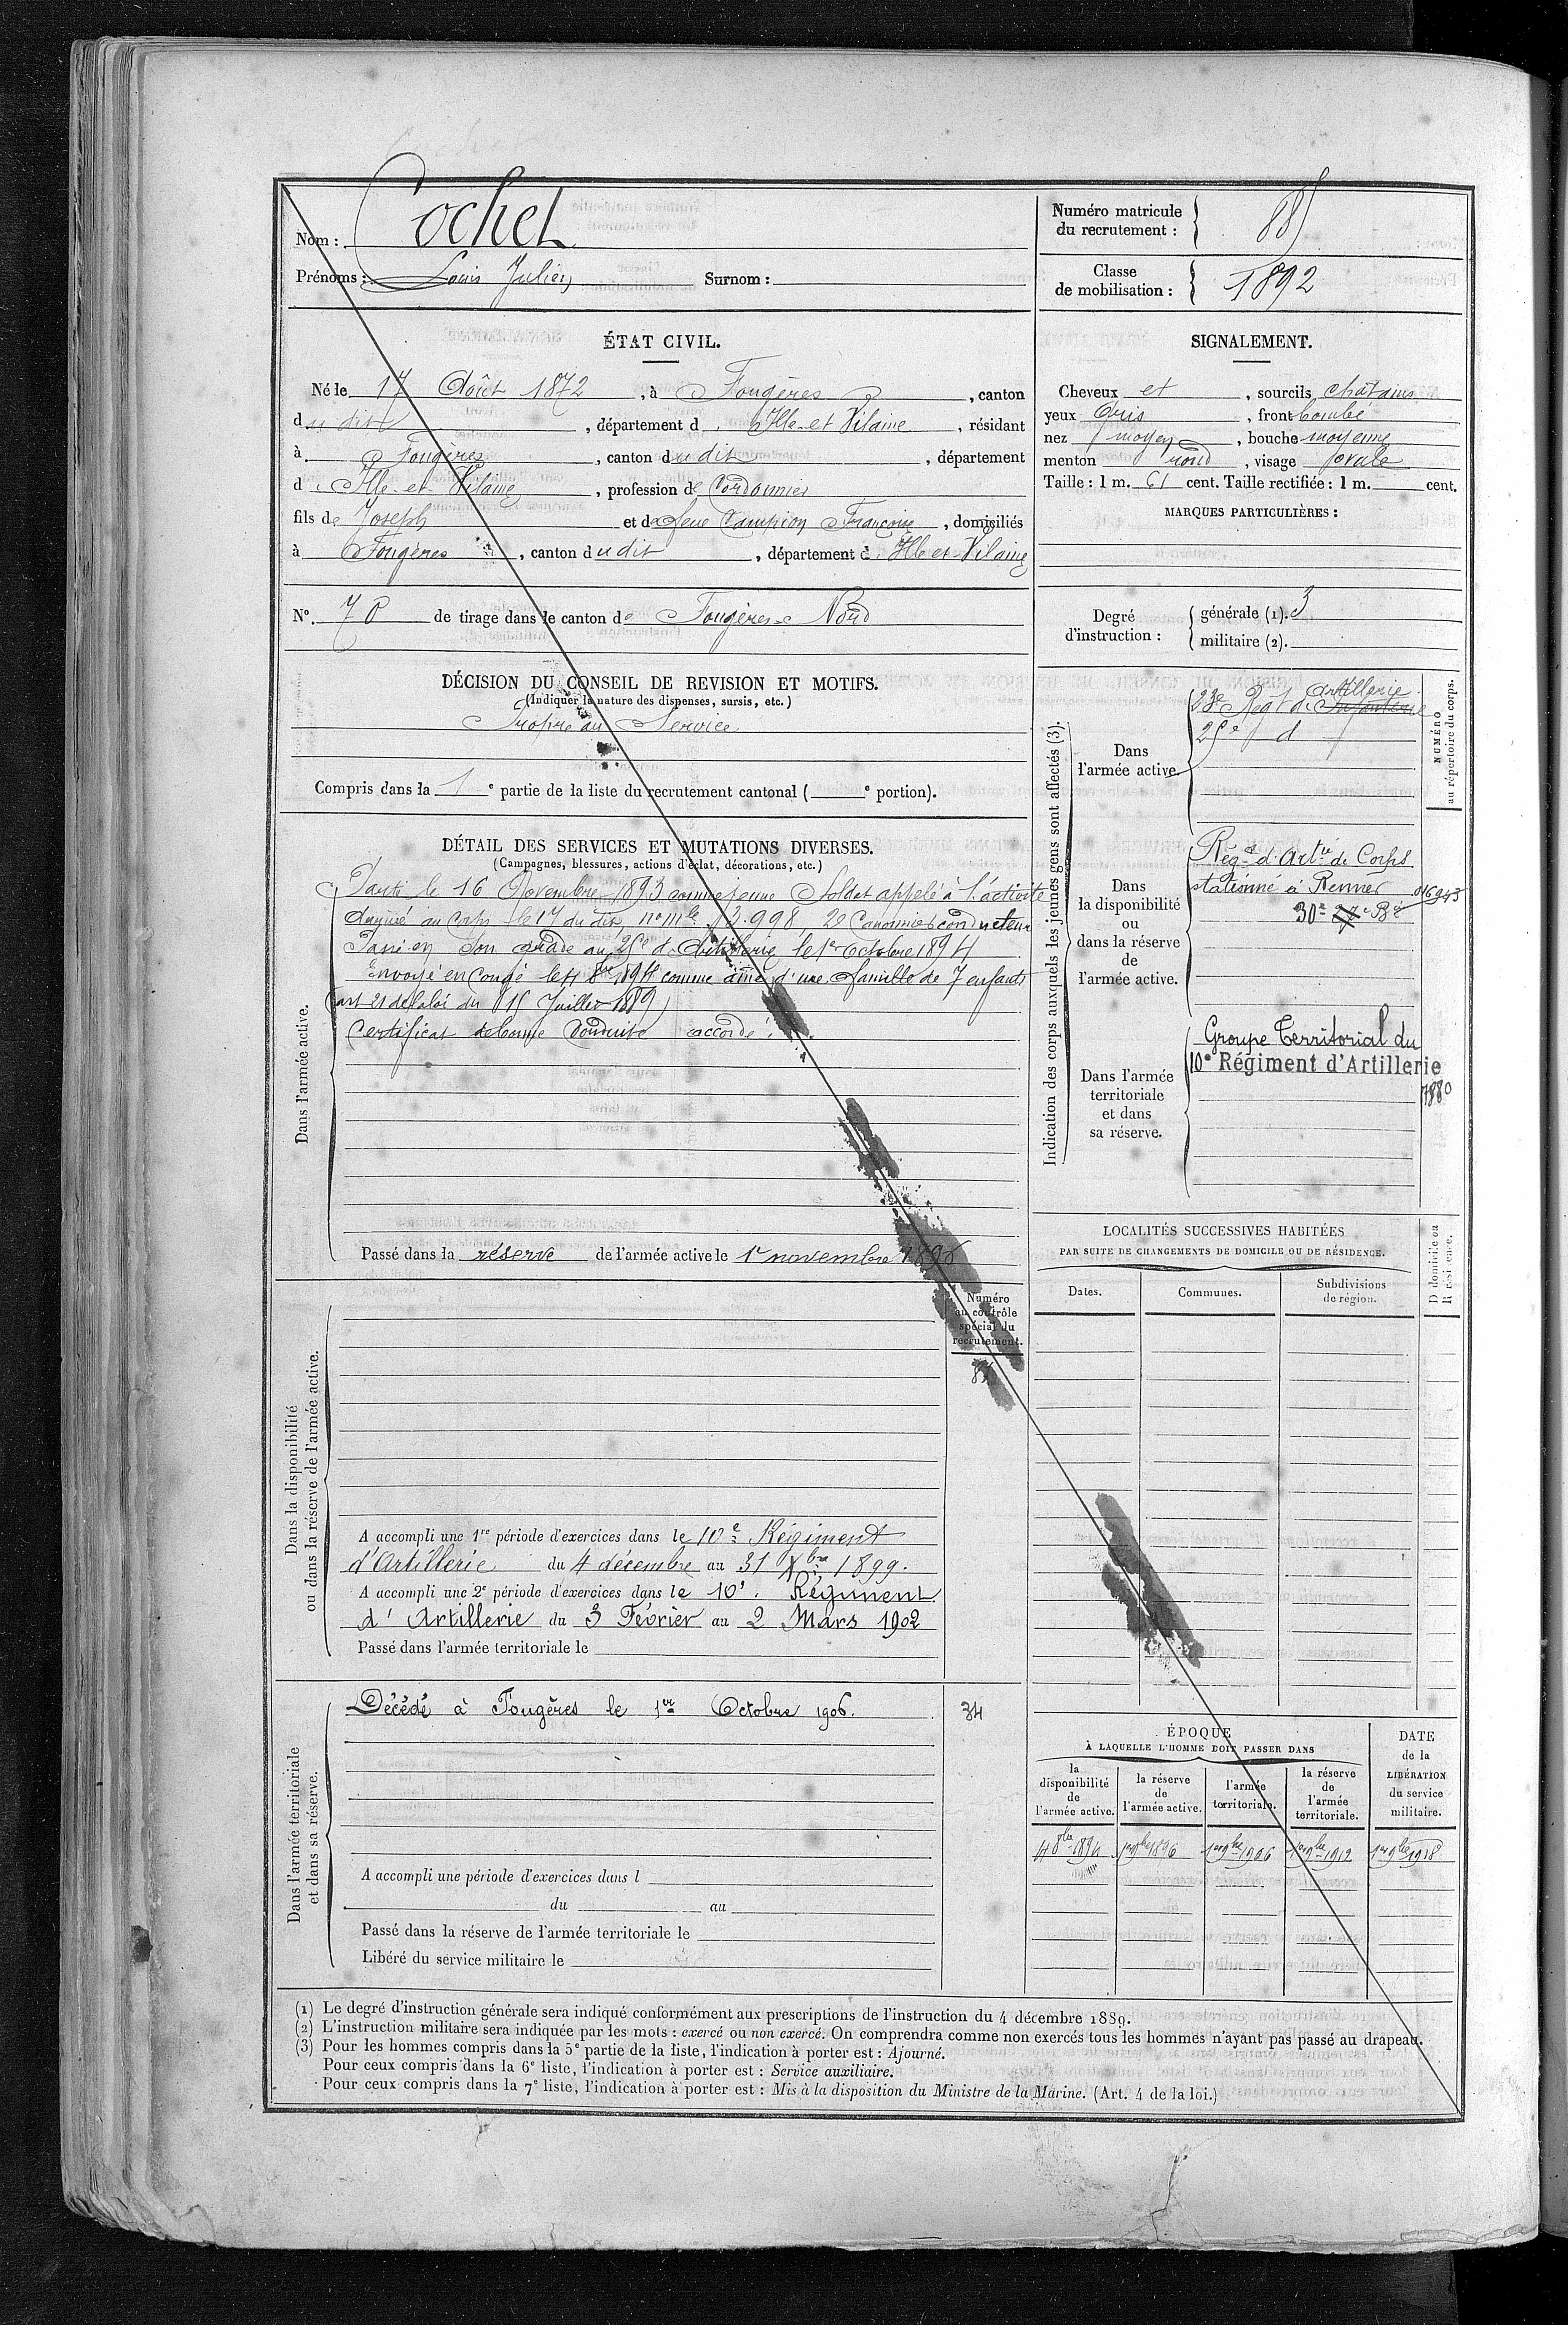 Nom : Cochet
Prénoms : Louis Julien Surnom :
Numéro matricule du recrutement : 885
Classe de mobilisation : 1892
ÉTAT CIVIL.
Né le 17 Août 1872, à Fougères, canton
dudit, département d'Ille-et-Vilaine, résidant
à Fougères, canton dudit, département
d'Ille-et-Vilaine, profession de Cordonnier
fils de Joseph et de feue Campion Françoise, domiciliés
à Fougères, canton dudit, département d'Ille-et-Vilaine
N° 70 de tirage dans le canton de Fougères Nord
DÉCISION DU CONSEIL DE REVISION ET MOTIFS.
(Indiquer la nature des dispenses, sursis, etc.)
Propre au Service
Compris dans la 1e partie de la liste du recrutement cantonal ( e portion).
DÉTAIL DES SERVICES ET MUTATIONS DIVERSES.
(Campagnes, blessures, actions d'éclat, décorations, etc.)
Dans l'armée active.
Parti le 16 Novembre 1893 comme jeune Soldat appelé à l'activité
Arrivé au Corps le 17 du dit, n° mle 2.998, 2e Canonnier conducteur
Passé en son grade au 25e d'Artillerie le 1er Octobre 1894
Envoyé en Congé le 4 8bre 1894 comme aîné d'une famille de 7 enfants
(art 21 de la loi du 15 Juillet 1889)
Certificat de bonne Conduite accordé.
Passé dans la réserve de l'armée active le 1er novembre 1896
Dans la disponibilité
ou dans la réserve de l'armée active.
Numéro
au contrôle
spécial du
recrutement.
A accompli une 1re période d'exercices dans le 10e Régiment
d'Artillerie du 4 décembre au 31 Xbre 1899.
A accompli une 2e période d'exercices dans le 10e Régiment
d'Artillerie du 3 Février au 2 Mars 1902
Passé dans l'armée territoriale le
Dans l'armée territoriale
et dans sa réserve.
Décédé à Fougères le 1er Octobre 1906. 34
A accompli une période d'exercices dans l
du au
Passé dans la réserve de l'armée territoriale le
Libéré du service militaire le
SIGNALEMENT.
Cheveux et, sourcils châtains
yeux Gris, front bombé
nez moyen, bouche moyenne
menton rond, visage ovale
Taille : 1 m. 61 cent. Taille rectifiée : 1 m. cent.
MARQUES PARTICULIÈRES :
Degré d'instruction : générale (1). 3
militaire (2).
Indication des corps auxquels les jeunes gens sont affectés (3).
NUMÉRO
au répertoire du corps.
Dans
l'armée active.
Artillerie
23e Regt d'Infanterie
25e d
Dans
la disponibilité
ou
dans la réserve
de
l'armée active.
Régt d'Artie de Corps
stationné à Rennes 016943
30e 27e Bie
Dans l'armée
territoriale
et dans
sa réserve.
Groupe Territorial du
10e Régiment d'Artillerie
7880
LOCALITÉS SUCCESSIVES HABITÉES
PAR SUITE DE CHANGEMENTS DE DOMICILE OU DE RÉSIDENCE.
Dates. Communes. Subdivisions de région. D domicile ou R résidence.
ÉPOQUE
À LAQUELLE L'HOMME DOIT PASSER DANS
la disponibilité de l'armée active.
la réserve de l'armée active.
l'armée territoriale.
la réserve de l'armée territoriale.
DATE de la LIBÉRATION du service militaire.
4 8bre 1894 1er 9bre 1896 1er 9bre 1906 1er 9bre 1912 1er 9bre 1918
(1) Le degré d'instruction générale sera indiqué conformément aux prescriptions de l'instruction du 4 décembre 1889.
(2) L'instruction militaire sera indiquée par les mots : exercé ou non exercé. On comprendra comme non exercés tous les hommes n'ayant pas passé au drapeau.
(3) Pour les hommes compris dans la 5e partie de la liste, l'indication à porter est : Ajourné.
Pour ceux compris dans la 6e liste, l'indication à porter est : Service auxiliaire.
Pour ceux compris dans la 7e liste, l'indication à porter est : Mis à la disposition du Ministre de la Marine. (Art. 4 de la loi.)